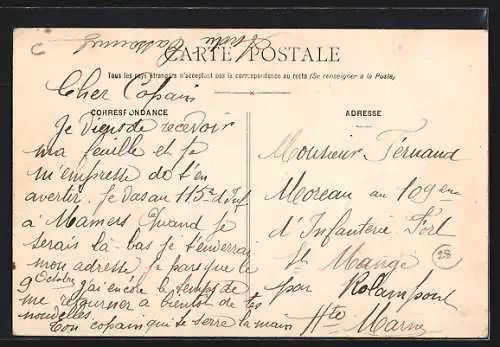 C
CARTE POSTALE
Tous les pays étrangers n'acceptent pas la correspondance au recto (Se renseigner à la Poste)
Cher Copain
CORRESPONDANCE
Je viens de recevoir
ma feuille et je
m'empresse de t'en
avertir. Je vas au 115e d'Inf
à Mamers Quand je
serais là-bas je t'enverrai
mon adresse je pars que le
9 Octobre j'ai encore le temps de
me retourner à bientôt de tes
nouvelles.
Ton copain qui te serre la main
ADRESSE
Monsieur Fernand
Moreau au 109eme
d'Infanterie Fort
St Mange
par Rolampont
Hte Marne
28